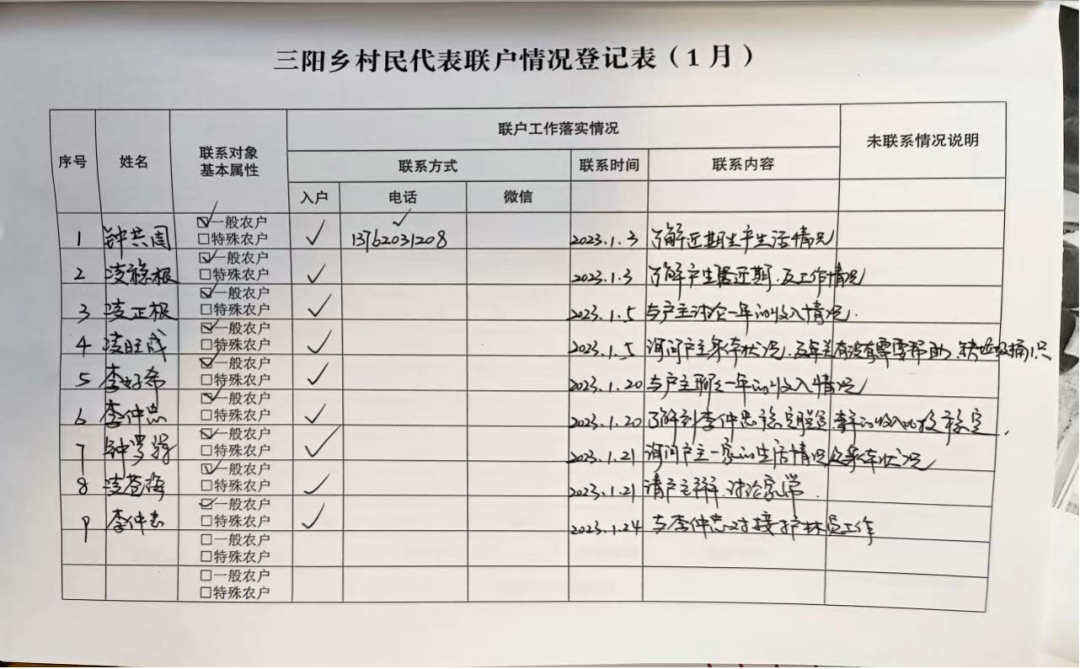 三阳乡村民代表联户情况登记表（1月）
序号 姓名 联系对象基本属性 联户工作落实情况 未联系情况说明
联系方式 联系时间 联系内容
入户 电话 微信
☑一般农户
1 钟共周 □特殊农户 ✓ ✓ 13762031208 2023.1.3 了解近期生产生活情况
☑一般农户
2 凌禄根 □特殊农户 ✓ 2023.1.3 了解产生活近期.及工作情况
☑一般农户
3 凌正根 □特殊农户 ✓ 2023.1.5 与户主讨论一年的收入情况.
☑一般农户
4 凌旺成 □特殊农户 ✓ 2023.1.5 询问户主身体状况.及年关有没有需要帮助.
☑一般农户
5 李好希 □特殊农户 ✓ 2023.1.20 与户主聊之一年的收入情况
☑一般农户
6 李仲忠 □特殊农户 ✓ 2023.1.20 了解到李仲忠
☑一般农户
7 钟 □特殊农户 ✓ 2023.1.21 询问户主一家的生活情况及身体状况
☑一般农户
8 凌苍梅 □特殊农户 ✓ 2023.1.21 请户主 讨论家常.
☑一般农户
9 李仲忠 □特殊农户 ✓ 2023.1.24 与李仲忠对接护林员工作
□一般农户
□特殊农户
□一般农户
□特殊农户